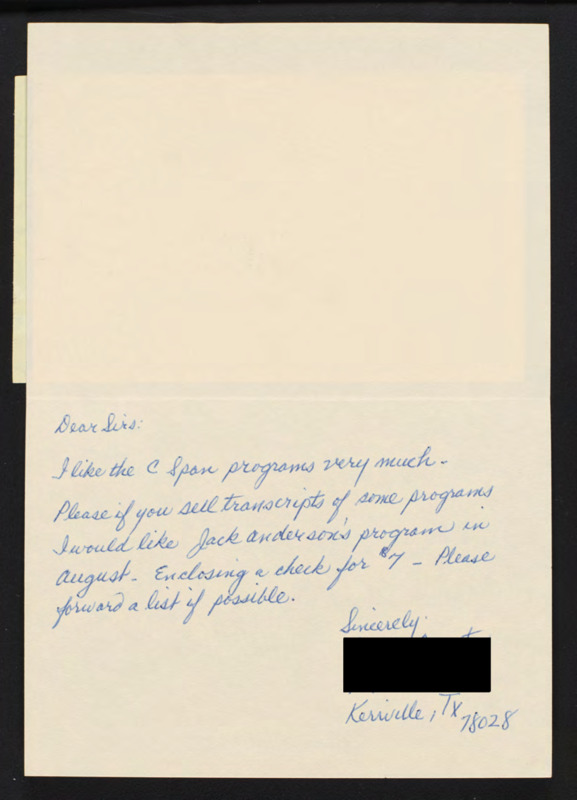 Dear Sirs:
I like the C Span programs very much -
Please if you sell transcripts of some programs
I would like Jack Anderson's program in
August - Enclosing a check for $7 - Please
forward a list if possible.
Sincerely
Kerrville, Tx
78028